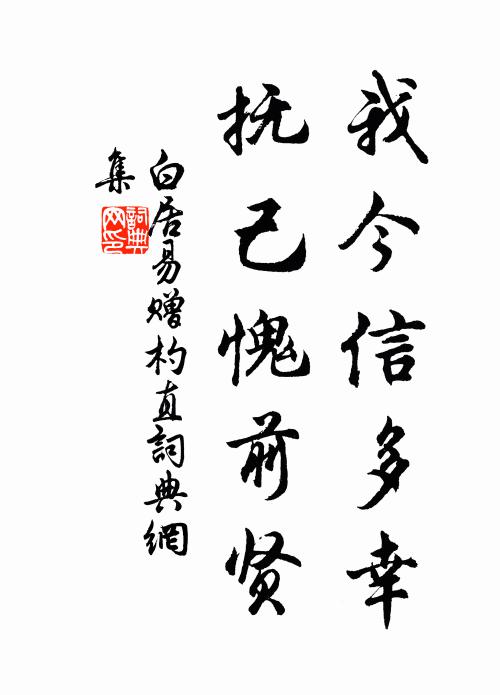 我今信多幸
抚己愧前贤
白居易赠杓直詞典網
集
詞典
网印